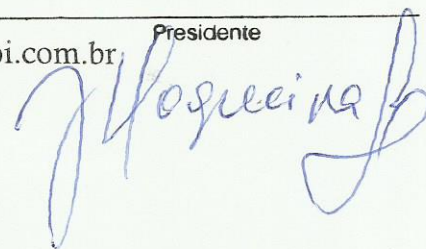 Presidente
oi.com.br
Nogueira